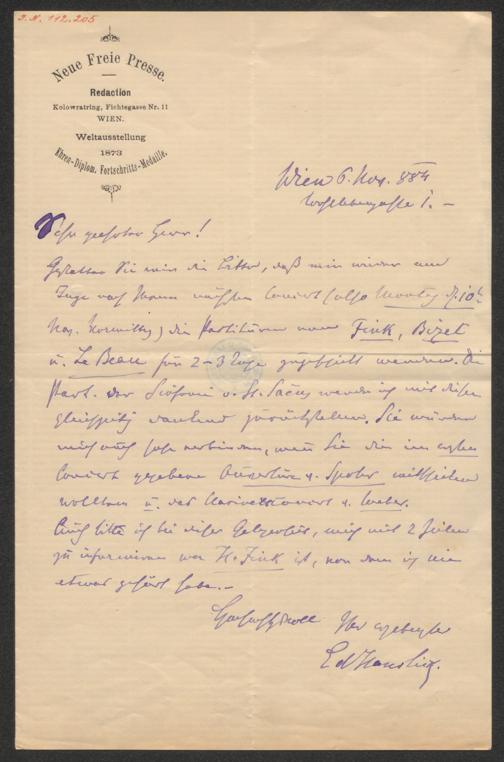 J. N. 112.205
Neue Freie Presse.
Redaction
Kolowratring, Fichtegasse Nr. 11
WIEN.
Weltausstellung
1873
Ehren-Diplom. Fortschritts-Medaille.
Wien 6. Nov. 884
Sehr geehrter Herr!
Gestatten Sie mir die Bitte, daß mir wieder am
Tage nach Ihrem nächsten Concert (also Montag d. 10t
Nov. Vormittg) die Partituren von Fink, Bizet
u. Le Beau für 2–3 Tage zugestellt werden. Die
Part. der Sinfonie v. St. Saëns werde ich mit diesen
gleichzeitig dankend zurückstellen. Sie würden
mich auch sehr verbinden, wenn Sie die im ersten
Concert gegebene Ouvertüre v. Spohr mittheilen
wollten u. das Clarinetconcert v. Weber.
Auch bitte ich bei dieser Gelegenheit, mich mit 2 Zeilen
zu informiren wer H. Fink ist, von dem ich nie
etwas gehört habe.–
Hochachtungsvoll Ihr ergebenster
Ed Hanslick.